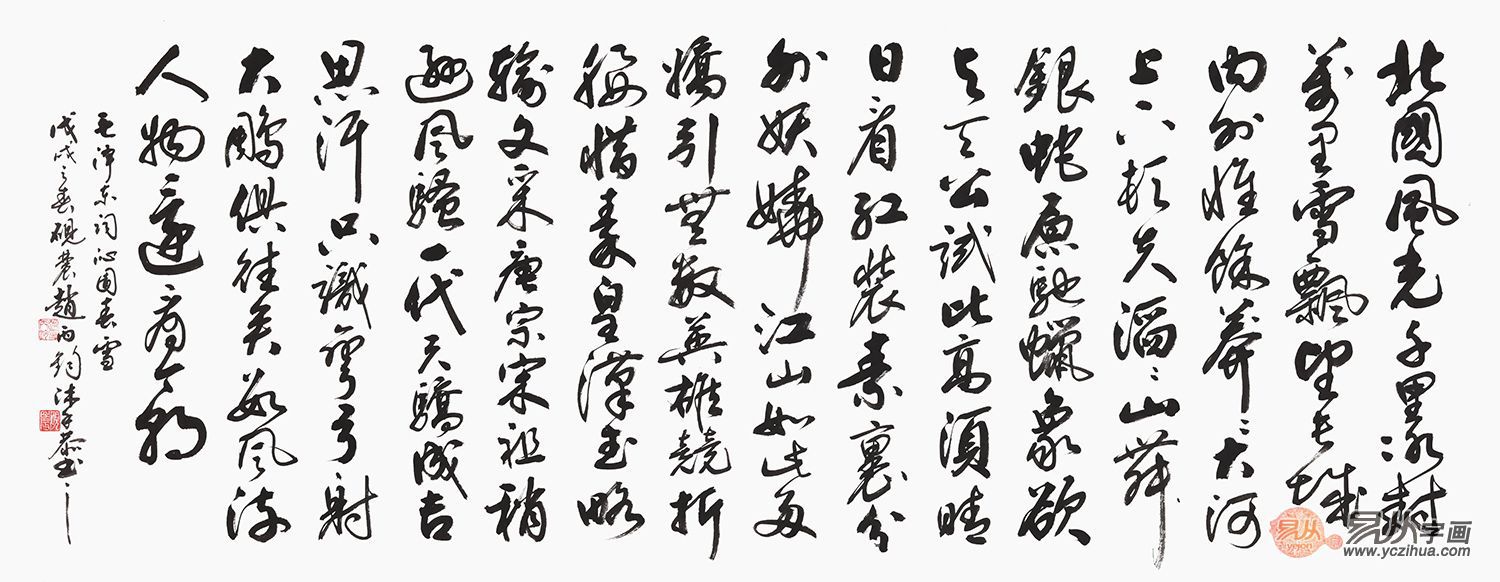 北國風光千里冰封
萬里雪飄望長城
內外惟餘莽〻大河
上下頓失滔〻山舞
銀蛇原馳蠟象欲
与天公試比高須晴
日看紅裝素裹分
外妖嬈江山如此多
嬌引無數英雄競折
腰惜秦皇漢武略
輸文采唐宗宋祖稍
遜風騷一代天驕成吉
思汗只識彎弓射
大鵰俱往矣數風流
人物還看今朝
毛澤東詞沁園春雪
戊戌之春硯農趙丙鈞沐手恭書之
易从
易从字画
www.yczihua.com